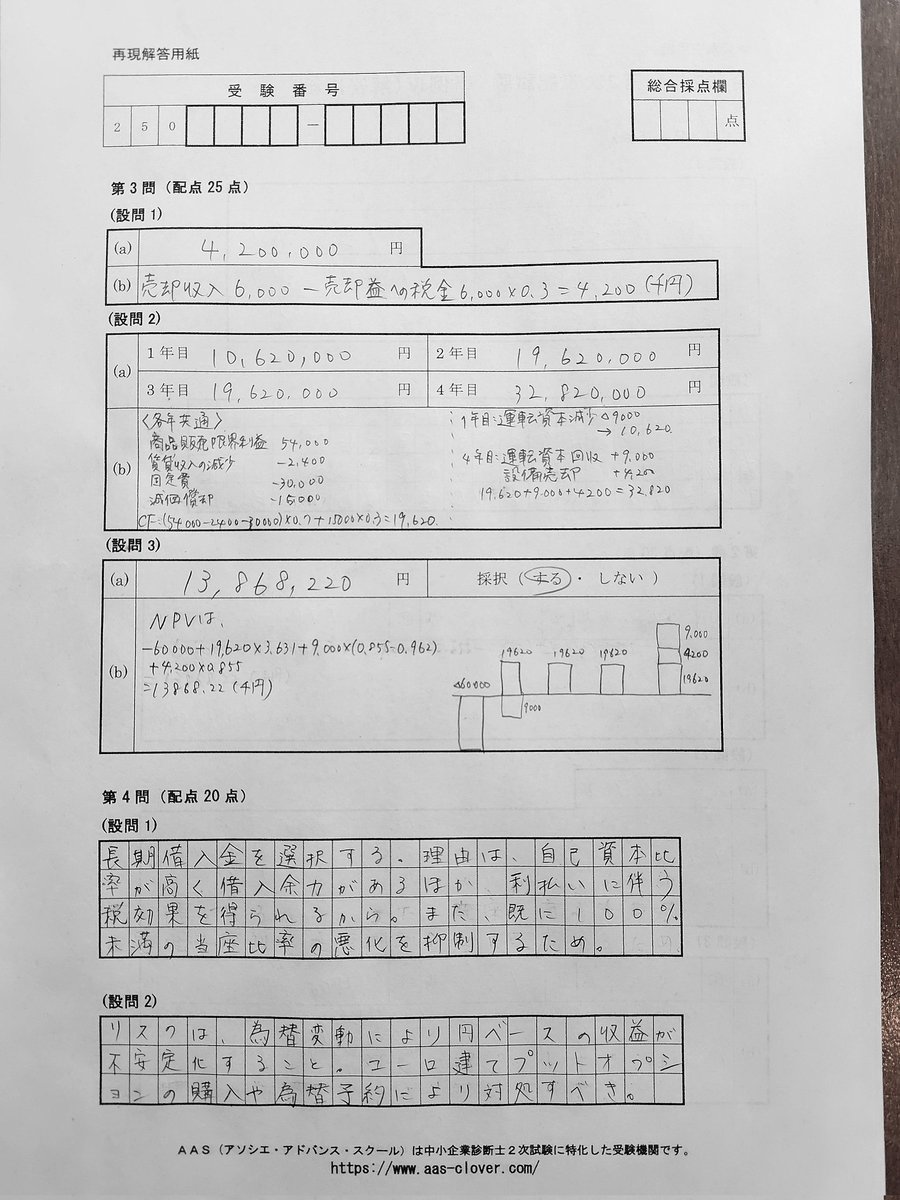 再現解答用紙
受験番号
250 －
総合採点欄
点
第3問（配点25点）
(設問1)
(a) 4,200,000 円
(b) 売却収入 6,000 － 売却益への税金 6,000×0.3＝4,200（千円）
(設問2)
(a) 1年目 10,620,000 円 2年目 19,620,000 円
3年目 19,620,000 円 4年目 32,820,000 円
(b) 〈各年共通〉
商品販売限界利益 54,000
賃貸収入の減少 -2,400
固定費 -30,000
減価償却 -15,000
CF=(54,000-2400-30000)×0.7+15000×0.3=19,620.
1年目:運転資本減少 △9000
→ 10,620.
4年目:運転資本回収 +9,000
設備売却 +4,200
19,620+9,000+4200=32,820
(設問3)
(a) 13,868,220 円 採択（する・しない）
(b) NPVは、
-60000+19,620×3.631+9,000×(0.855-0.962)
+4,200×0.855
=13868.22（千円）
△60000 19620 9000 19620 19620 9,000 4200 19620
第4問（配点20点）
(設問1)
長期借入金を選択する。理由は、自己資本比
率が高く借入余力があるほか、利払いに伴う
税効果を得られるから。また、既に100％
未満の当座比率の悪化を抑制するため。
(設問2)
リスクは、為替変動により円ベースの収益が
不安定化すること。ユーロ建てプットオプシ
ョンの購入や為替予約により対処すべき。
AAS（アソシエ・アドバンス・スクール）は中小企業診断士2次試験に特化した受験機関です。
https://www.aas-clover.com/